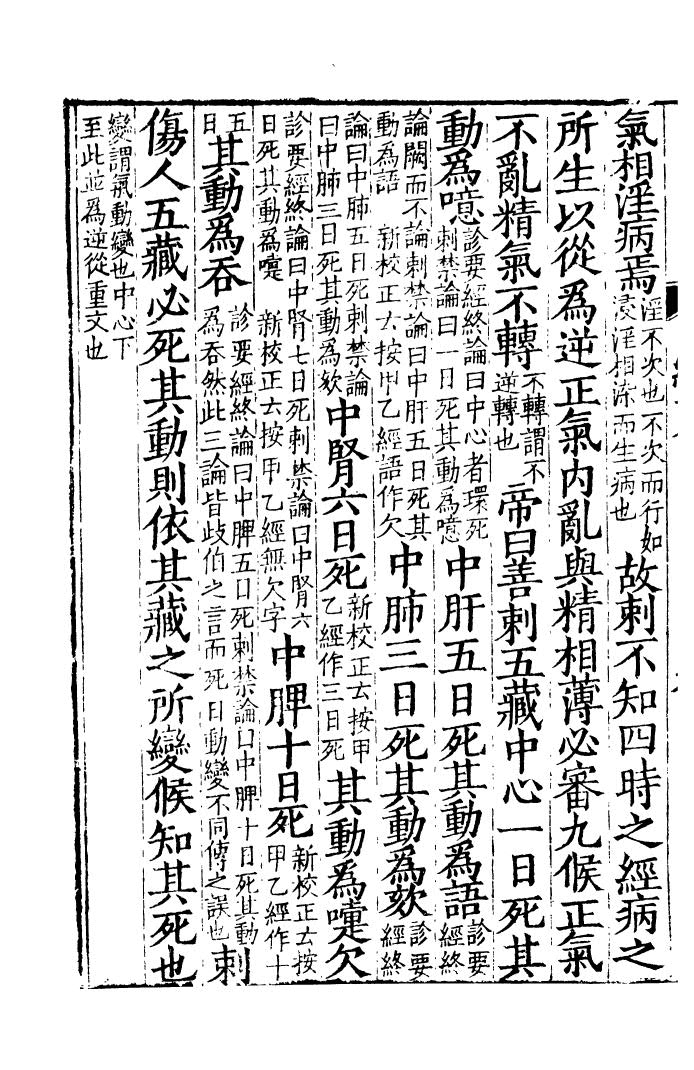 氣相淫病焉淫不次也不次而行如浸淫相染而生病也故刺不知四時之經病之
所生以從爲逆正氣內亂與精相薄必審九候正氣
不亂精氣不轉不轉謂不逆轉也帝曰善刺五藏中心一日死其
動爲噫診要經終論曰中心者環死刺禁論曰一日死其動爲噫中肝五日死其動爲語診要經終
論闕而不論刺禁論曰中肝五日死其動爲語 新校正云按甲乙經語作欠中肺三日死其動爲欬診要經終
論曰中肺五日死刺禁論曰中肺三日死其動爲欬中腎六日死新校正云按甲乙經作三日死其動爲嚏欠
診要經終論曰中腎七日死刺禁論曰中腎六日死其動爲嚏 新校正云按甲乙經無欠字中脾十日死新校正云按甲乙經作十
五日其動爲吞診要經終論曰中脾五日死刺禁論曰中脾十日死其動爲吞然此三論皆歧伯之言而死日動變不同傳之誤也刺
傷人五藏必死其動則依其藏之所變候知其死也
變謂氣動變也中心下至此並爲逆從重文也